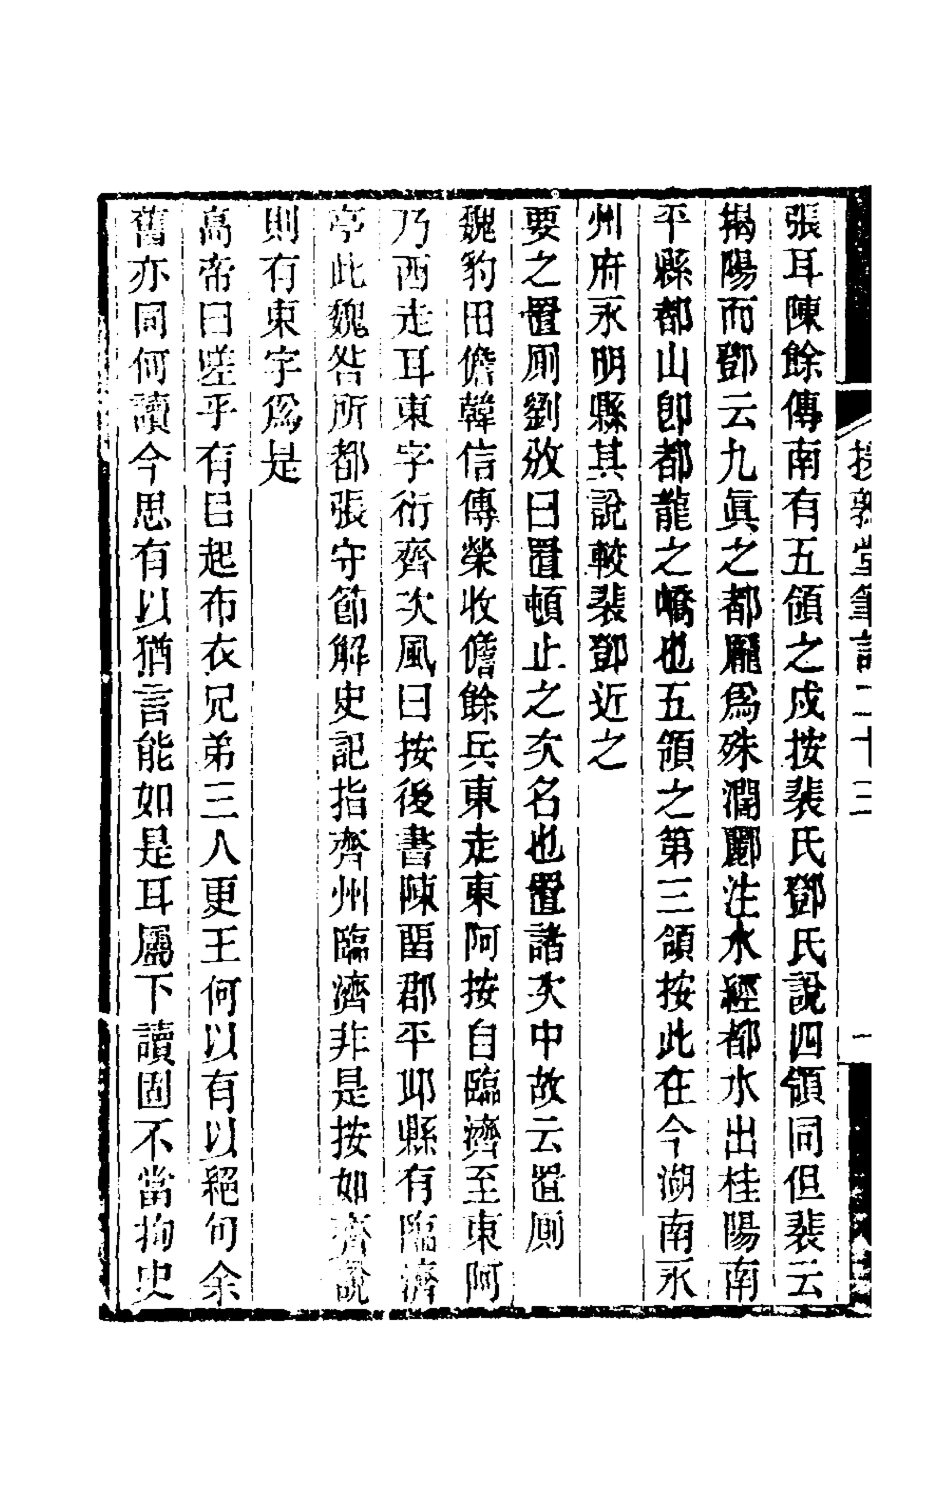 援鶉堂筆記二十三　一
張耳陳餘傳南有五領之戍按裴氏鄧氏說四領同但裴云
揭陽而鄧云九眞之都龎爲殊澗酈注水經都水出桂陽南
平縣都山卽都龍之嶠也五領之第三領按此在今湖南永
州府永明縣其說較裴鄧近之
要之置厠劉攽曰置頓止之次名也置諸次中故云置厠
魏豹田儋韓信傳榮收儋餘兵東走東阿按自臨濟至東阿
乃西走耳東字衍齊次風曰按後書陳留郡平邱縣有臨濟
亭此魏咎所都張守節解史記指齊州臨濟非是按如齊說
則有東字爲是
高帝曰嗟乎有目起布衣兄弟三人更王何以有以絕句余
舊亦同何讀今思有以猶言能如是耳屬下讀固不當拘史